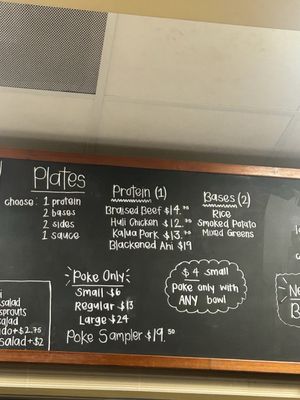 Plates
choose: 1 protein
2 bases
2 sides
1 sauce
Protein (1)
Braised Beef $14.
Huli Chicken $12.
Kalua Pork $13.
Blackened Ahi $19
Bases (2)
Rice
Smoked Potato
Mixed Greens
Poke Only
Small $6
Regular $13
Large $24
Poke Sampler $19.50
$4 small
poke only with
ANY bowl
salad
sprouts
salad
+$2.75
salad +$2